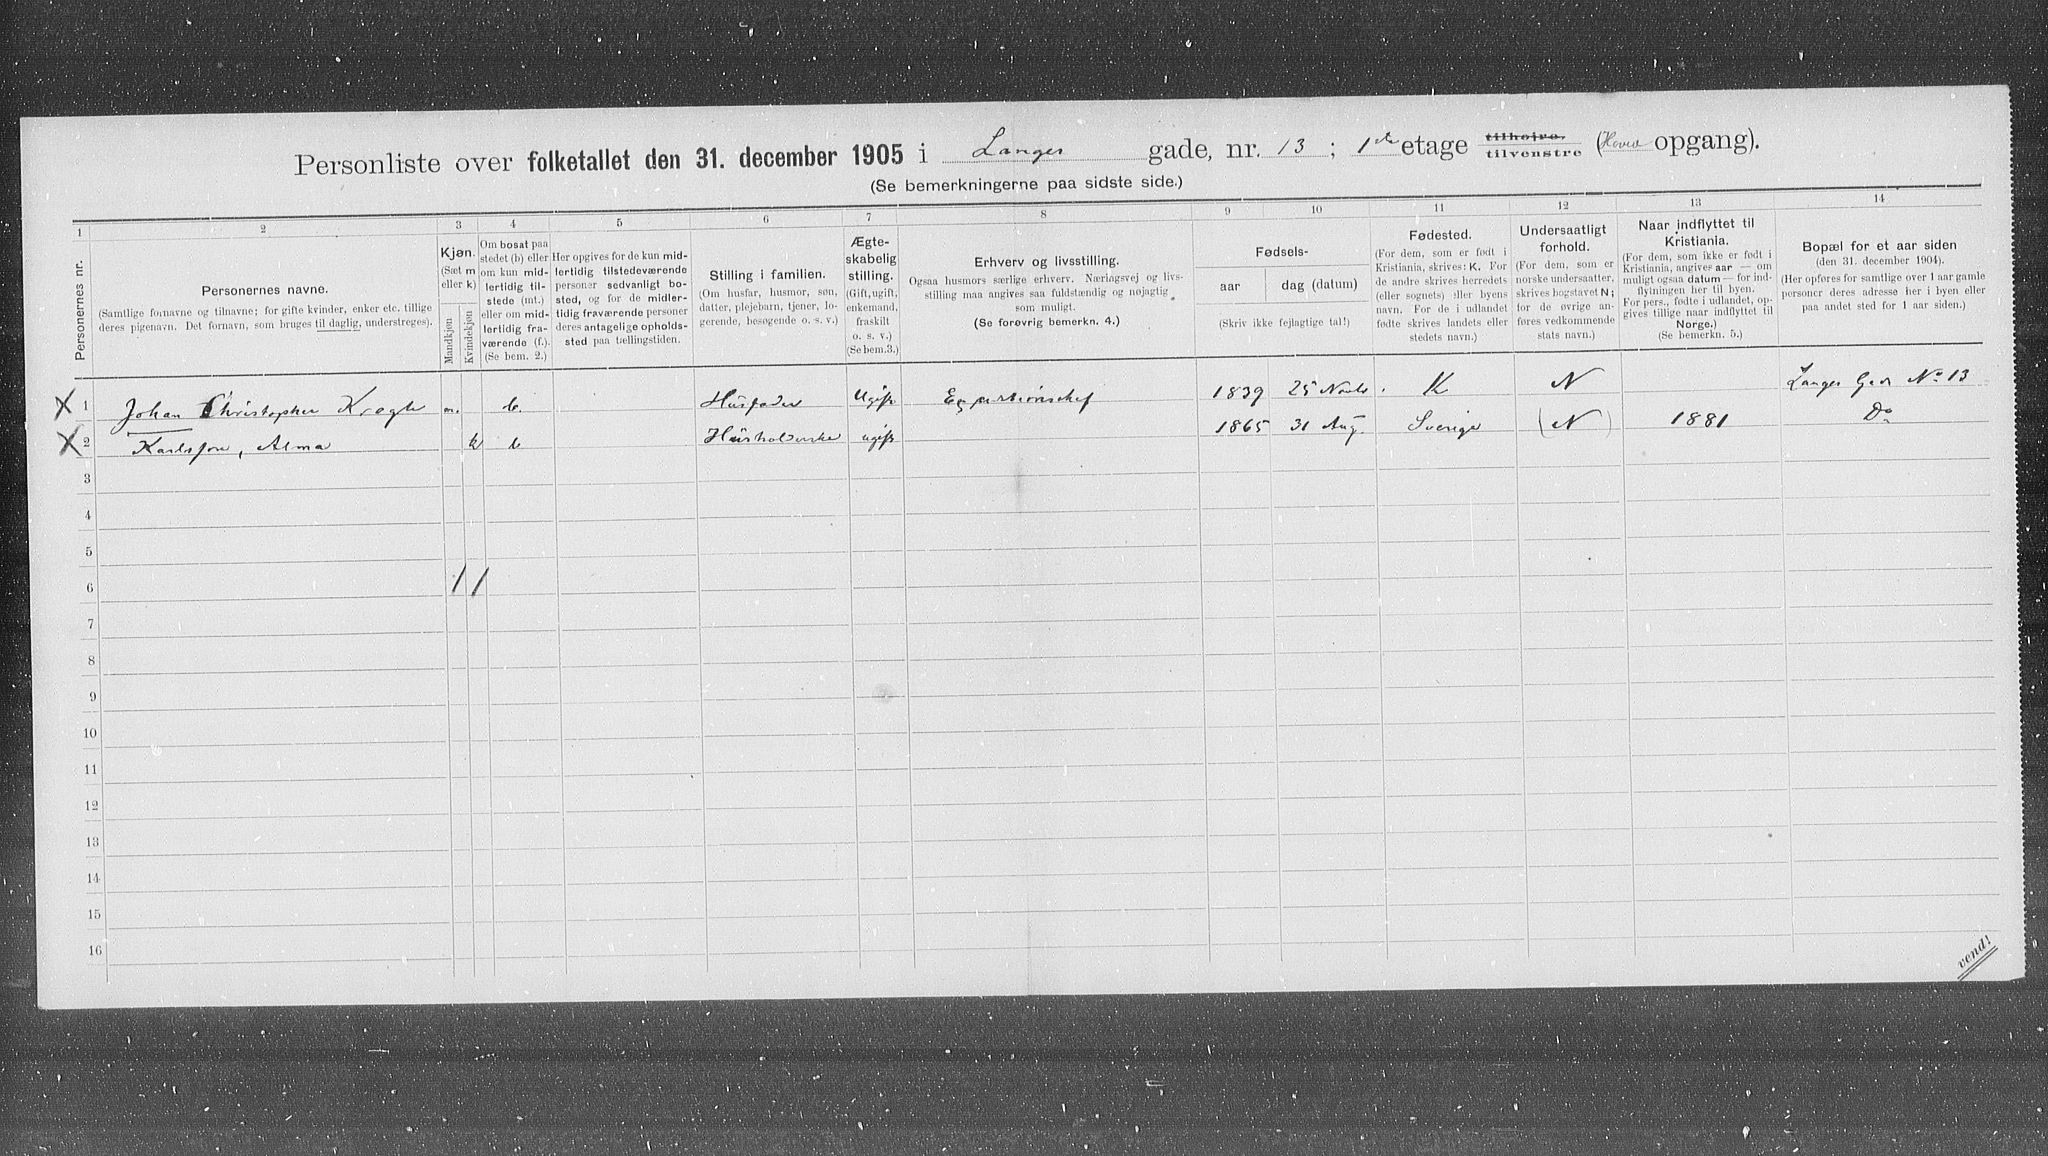 Personliste over folketallet den 31. december 1905 i Langes gade, nr. 13 ; 1ste etage tilhøire. tilvenstre (Hoved opgang).
(Se bemerkningerne paa sidste side.)
1 2 3 4 5 6 7 8 9 10 11 12 13 14
Personernes nr.
Personernes navne.
(Samtlige fornavne og tilnavne; for gifte kvinder, enker etc. tillige
deres pigenavn. Det fornavn, som bruges til daglig, understreges).
Kjøn.
(Sæt m
eller k)
Mandkjøn
Kvindekjøn
Om bosat paa
stedet (b) eller
om kun mid-
lertidig til-
stede (mt.)
eller om mid-
lertidig fra-
værende (f.).
(Se bem. 2.)
Her opgives for de kun mid-
lertidig tilstedeværende
personer sedvanligt bo-
sted, og for de midler-
tidig fraværende personer
deres antagelige opholds-
sted paa tællingstiden.
Stilling i familien.
(Om husfar, husmor, søn,
datter, plejebarn, tjener, lo-
gerende, besøgende o. s. v.)
Ægte-
skabelig
stilling.
(Gift, ugift,
enkemand,
fraskilt
o. s. v.)
(Se bem.3.)
Erhverv og livsstilling.
Ogsaa husmors særlige erhverv. Næringsvej og livs-
stilling maa angives saa fuldstændig og nøjagtig
som muligt.
(Se forøvrig bemerkn. 4.)
Fødsels-
aar
dag (datum)
(Skriv ikke fejlagtige tal!)
Fødested.
(For dem, som er født i
Kristiania, skrives: K. For
de andre skrives herredets
(eller sognets) eller byens
navn. For de i udlandet
fødte skrives landets eller
stedets navn.)
Undersaatligt
forhold.
(For dem, som er
norske undersaatter,
skrives bogstavet N;
for de øvrige an-
føres vedkommende
stats navn.)
Naar indflyttet til
Kristiania.
(For dem, som ikke er født i
Kristiania, angives aar — om
muligt ogsaa datum — for ind-
flytningen her til byen.
For pers., fødte i udlandet, op-
gives tillige naar indflyttet til
Norge.)
(Se bemerkn. 5.)
Bopæl for et aar siden
(den 31. december 1904).
(Her opføres for samtlige over 1 aar gamle
personer deres adresse her i byen eller
paa andet sted for 1 aar siden.)
X 1 Johan Christopher Kragh m. b. Husfader Ugift Expeditionschef 1839 25 Novb. K N Langes Gade No 13
X 2 Karlsson, Alma k b Husholderske ugift 1865 31 Aug. Sverige (N) 1881 Do
3
4
5
6 1 1
7
8
9
10
11
12
13
14
15
16
vend!